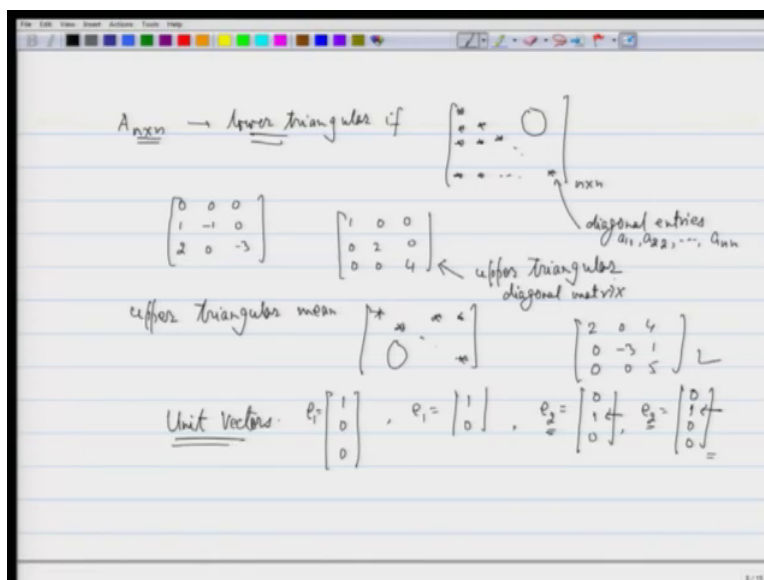 File Edit View Insert Actions Tools Help
A_{n×n} → lower triangular if [* O ; * * ; * * * ⋱ ; * * ... *]_{n×n}
diagonal entries
a_{11}, a_{22}, ..., a_{nn}
[0 0 0 ; 1 -1 0 ; 2 0 -3] [1 0 0 ; 0 2 0 ; 0 0 4] ← upper triangular
diagonal matrix
upper triangular mean [* * * ; * ⋱ ; O *] [2 0 4 ; 0 -3 1 ; 0 0 5]
Unit vectors. e_1 = [1 ; 0 ; 0], e_1 = [1 ; 0], e_2 = [0 ; 1 ; 0] ←, e_2 = [0 ; 1 ; 0 ; 0] ←